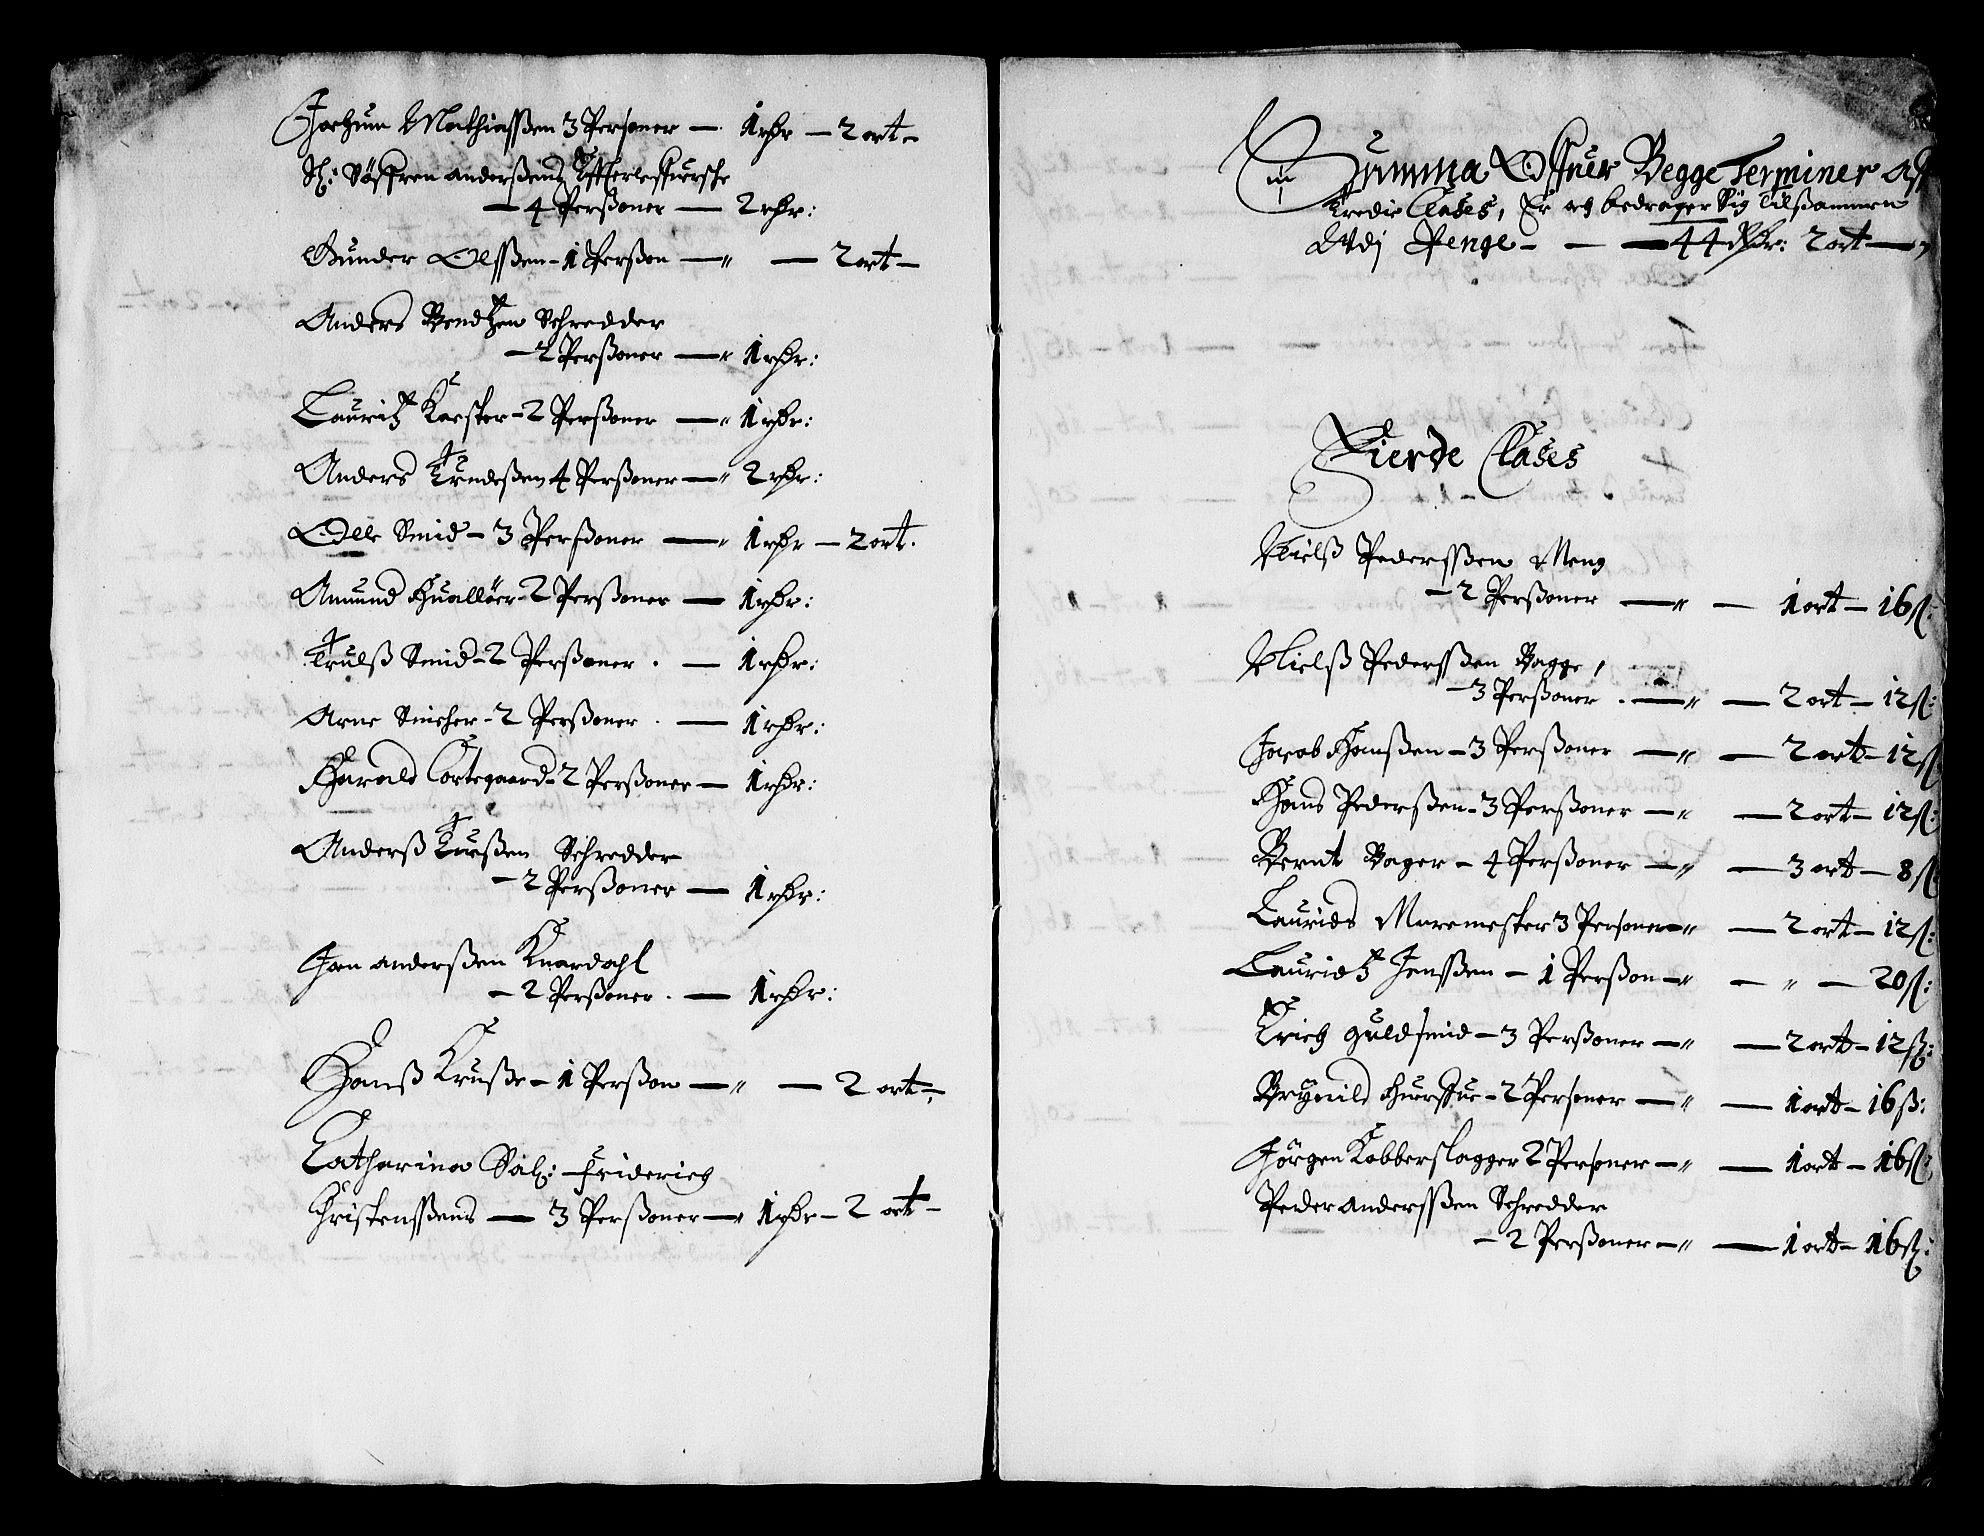 Jochum Mathiassen 3 Personer — 1 rdr — 2 ort —
Sl: Söffren anderßens Effterleffuersche
— 4 Perßoner — 2 rdr:
Gunder Olsßen – 1 Perßon — „ — 2 ort —
Anders Bendtzen Schredder
— 2 Perßoner — „ 1 rdr:
Lauritz Karsker – 2 Perßoner — „ 1 rdr:
Anders Trndeßen 4 Perßoner — „ 2 rdr:
Olle Smid – 3 Perßoner — „ 1 rdr — 2 ort.
Amund Huallöer – 2 Perßoner — 1 rdr:
Trulß Smid – 2 Perßoner . — 1 rdr:
Arne Snicher – 2 Perßoner . — 1 rdr:
Harald Cortegaard – 2 Perßoner — 1 rdr:
Anderß Tueßen Schredder
— 2 Perßoner — 1 rdr:
Jon anderßen Knardahl
— 2 Perßoner . — 1 rdr:
Hanß Kruße – 1 Perßon — „ — 2 ort —
Catharina Sal: Friderich
Christensßens — 3 Perßoner — „ 1 rdr – 2 ort –
Summa Offuer Begge Terminer aff
Tredie Clases, Er och bedrager Sig tilßammen
Vdj Penge – — — 44 Rdr: 2 ort —
Fierde Clases
Nielß Pedersßen Meng
— 2 Perßoner — „ — 1 ort – 16 ß:
Nielß Pedersßen Bagge,
— 3 Perßoner . — „ — 2 ort – 12 ß:
Jacob Hansßen – 3 Perßoner — „ — 2 ort – 12 ß
Hans Pederßen – 3 Perßoner — „ — 2 ort – 12 ß:
Bernt Bager – 4 Perßoner — „ — 3 ort – 8 ß
Laurids Muremester 3 Personer — „ — 2 ort – 12 ß:
Lauridtz Jensßen – 1 Perßon — „ — „ — 20 ß:
Erich guldsmid – 3 Perßoner — „ — 2 ort – 12 ß:
Brynild – 2 Personer — „ — 1 ort – 16 ß:
Jörgen Kobberslagger 2 Personer — „ — 1 ort – 16 ß:
Peder andersßen Schredder
— 2 Perßoner — „ — 1 ort – 16 ß: